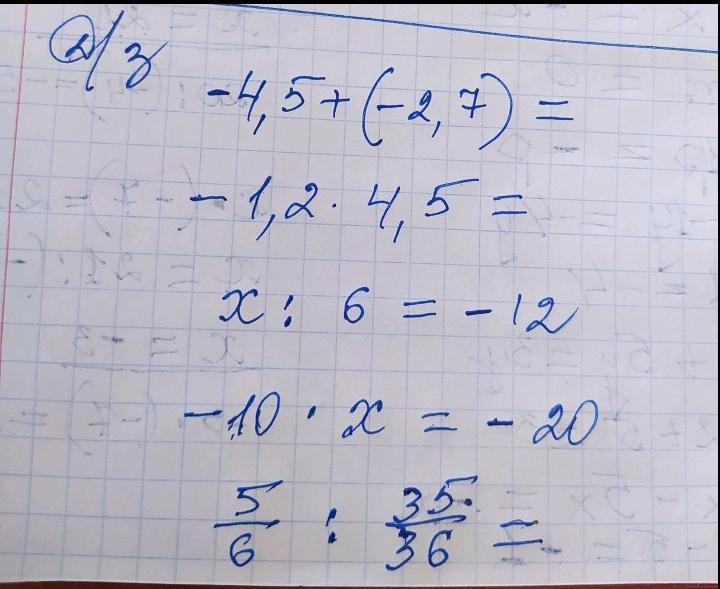 Д/з
-4,5+(-2,7)=
-1,2·4,5=
x: 6 = -12
-10·x = -20
5/6 : 35/36 =